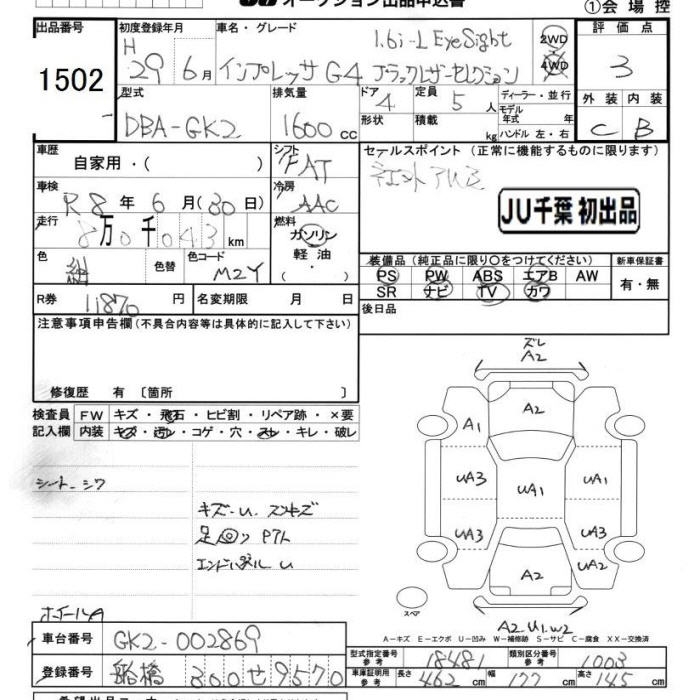 オークション出品申込書
①会場控
出品番号 初度登録年月 車名・グレード 評価点
1502 H 29年 6月 インプレッサ G4 1.6i-L EyeSight ブラックレザーセレクション 2WD 4WD 3
型式 排気量 ドア 定員 ディーラー・並行 外装 内装
DBA-GK2 1600cc 4 5人 モデル年式 年式 C B
形状 積載 kg ハンドル 左・右
車歴 シフト セールスポイント (正常に機能するものに限ります)
自家用・( ) FAT
車検 冷房
R8年 6月(30日) AAC JU千葉 初出品
走行 燃料
8万0千043km ガソリン
軽油・
色 色替 色コード 装備品 (純正品に限り○をつけてください) 新車保証書
紺 M2Y PS PW ABS エアB AW 有・無
SR ナビ TV カワ
R券 11870円 名変期限 月 日 後日品
注意事項申告欄(不具合内容等は具体的に記入して下さい)
修復歴 有 〔箇所 〕
ズレ
A2
A2
A1
UA3 UA1 UA1
UA3 UA3
UA2
A2
スペア
A2.U1.W2
検査員 FW キズ・飛石・ヒビ割・リペア跡・×要
記入欄 内装 キズ・汚レ・コゲ・穴・スレ・キレ・破レ
シート シワ
キズ・U スリキズ
足回り
エンドパネル U
ホイールA
A-キズ E-エクボ U-凹み W-補修跡 S-サビ C-腐食 XX-交換済
車台番号 GK2-002869
型式指定番号 参考 18481 類別区分番号 参考 1003
登録番号 船橋 300せ9570
車庫証明用 参考 長さ 462cm 幅 177cm 高さ 145cm